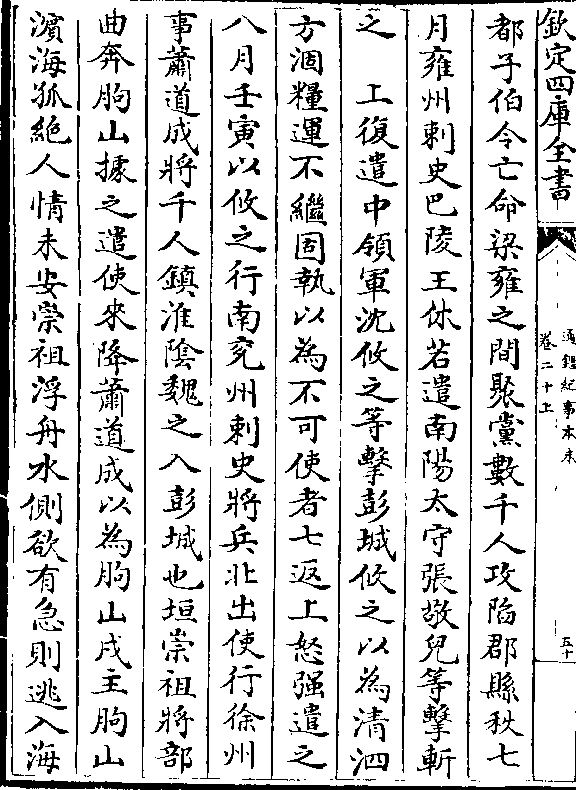 欽定四庫全書
通鑑紀事本末
卷二十上
五十
都子伯令亡命梁雍之間聚黨數千人攻陷郡縣秋七
月雍州刺史巴陵王休若遣南陽太守張敬兒等擊斬
之　上復遣中領軍沈攸之等擊彭城攸之以為清泗
方涸糧運不繼固執以為不可使者七返上怒强遣之
八月壬寅以攸之行南兖州刺史將兵北出使行徐州
事蕭道成將千人鎮淮陰魏之入彭城也垣崇祖將部
曲奔朐山據之遣使來降蕭道成以為朐山戍主朐山
濵海孤絶人情未安崇祖浮舟水側欲有急則逃入海